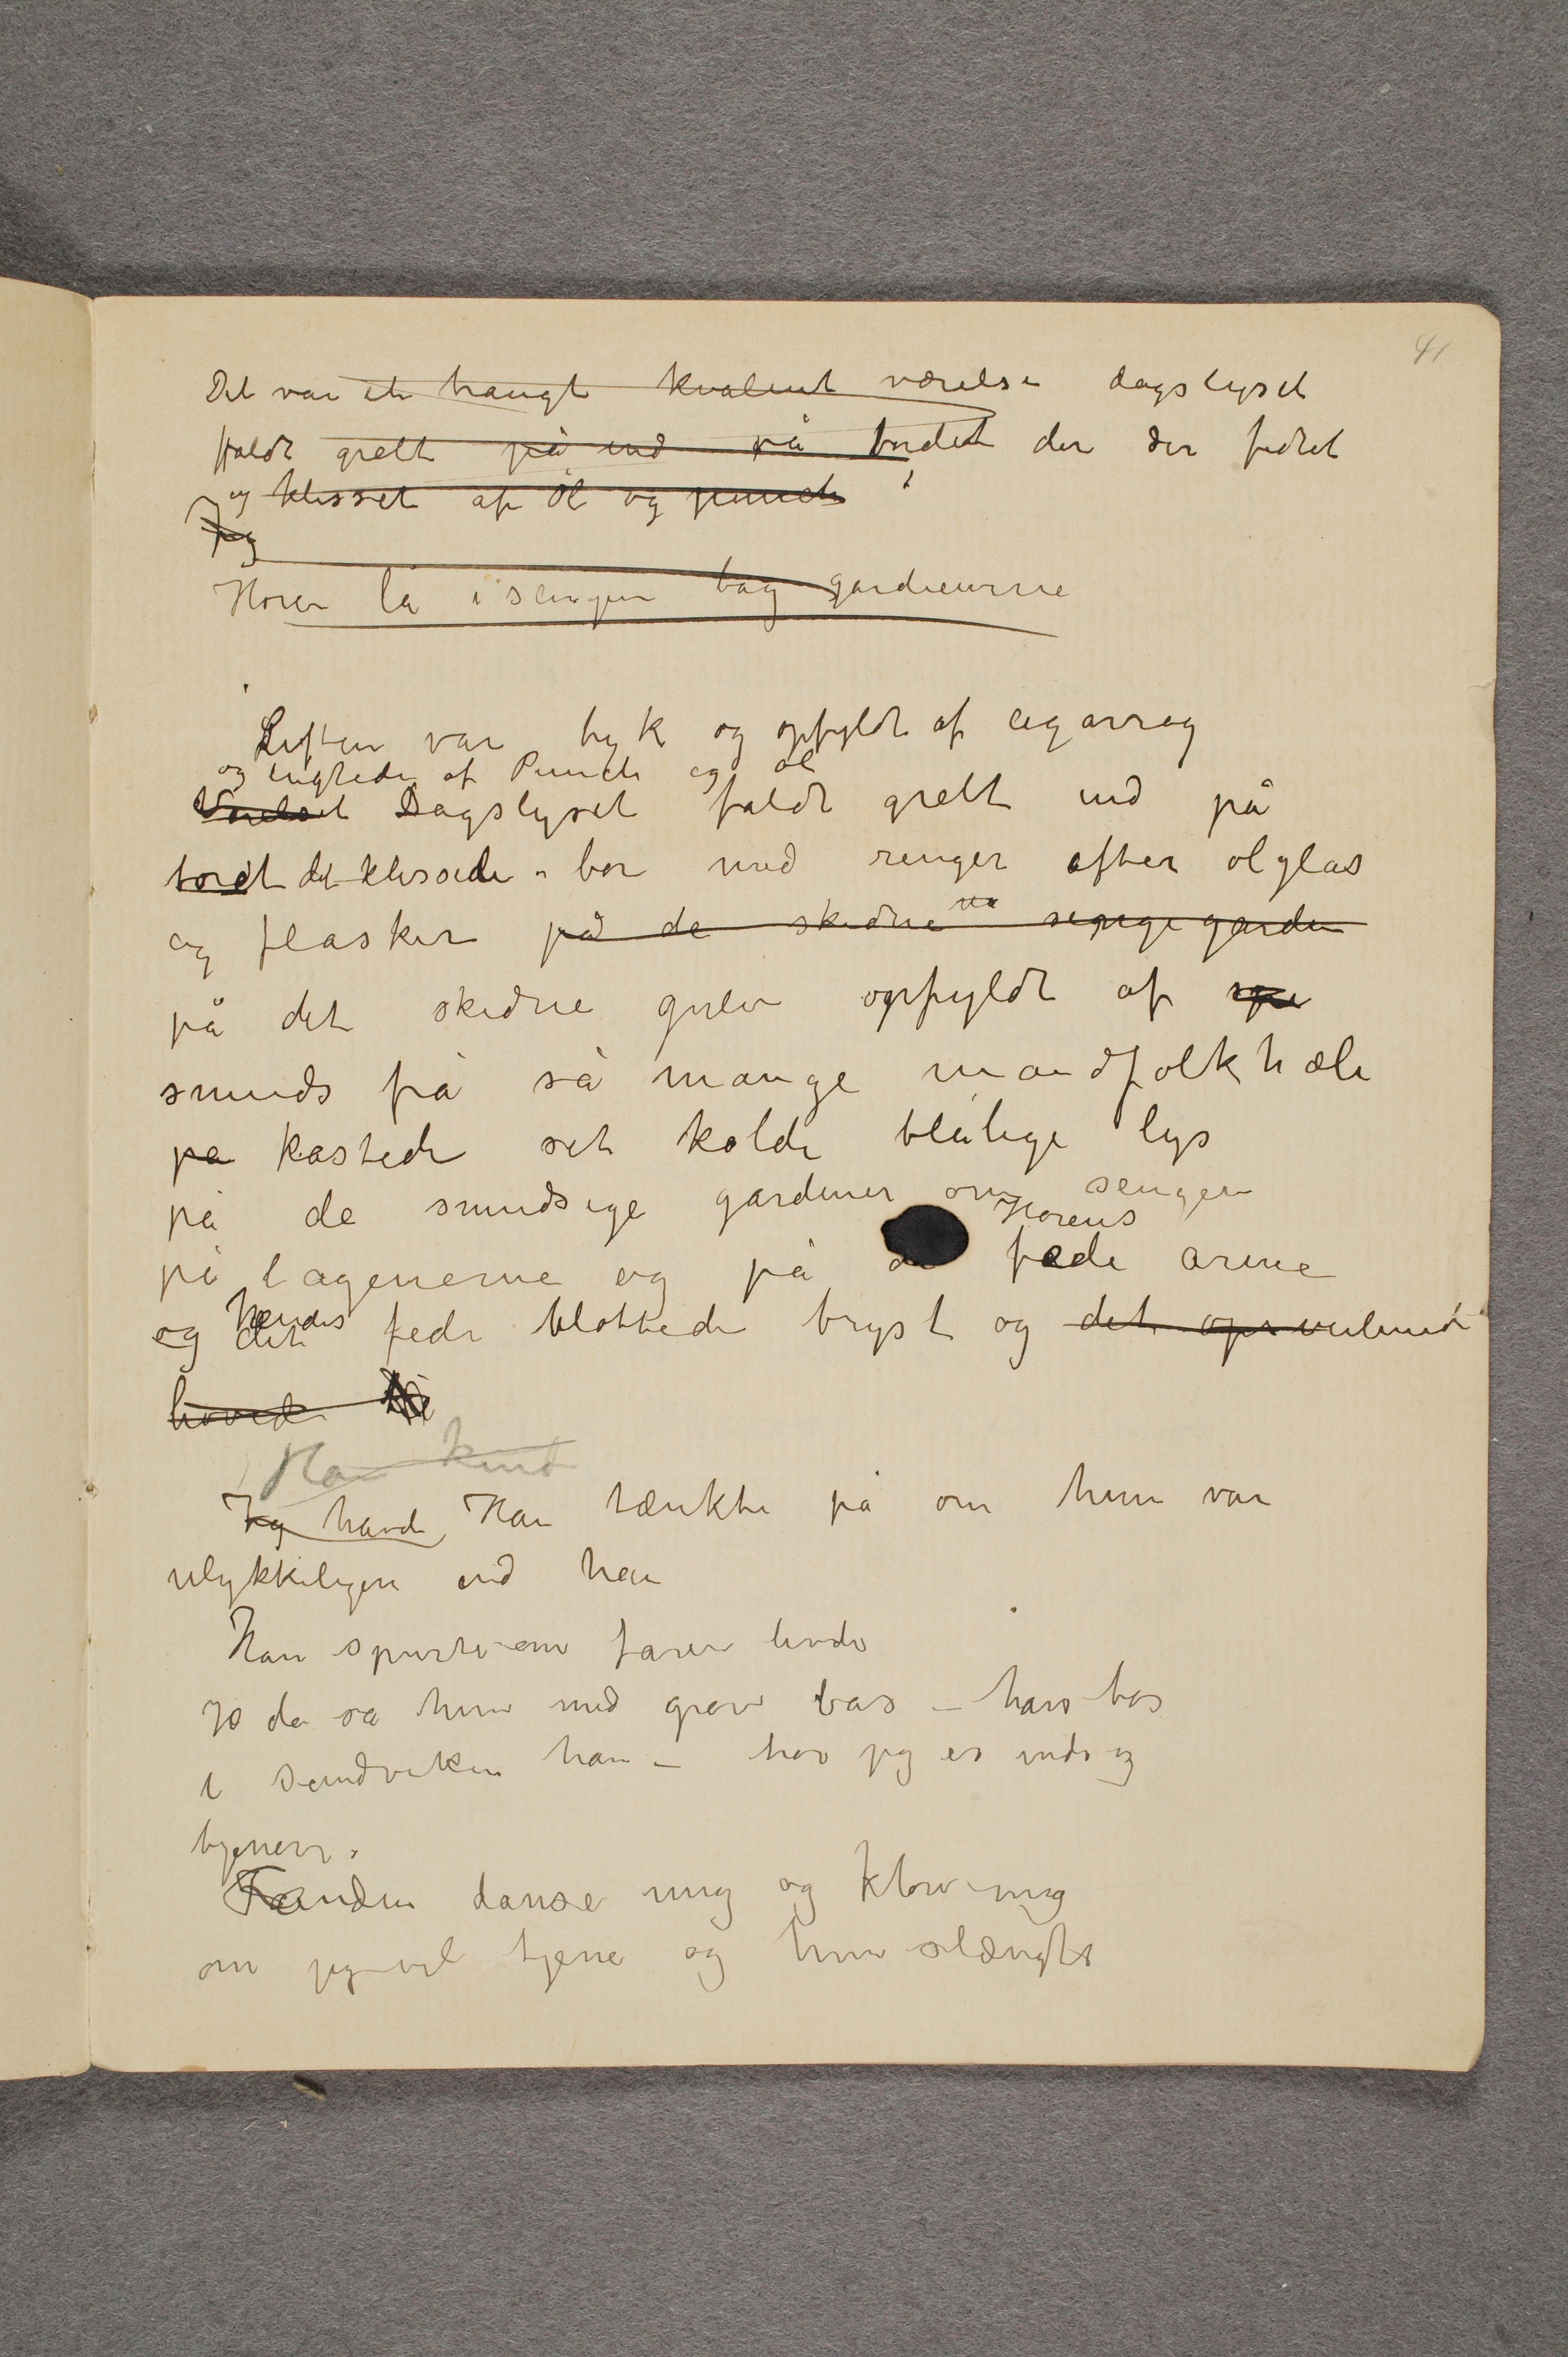 41
Det var et trangt kvalmt værelse dagslyset
faldt grelt på ind på bordet der der fedtet
og klisset af öl og punch
Jeg
Horen lå i sengen bag gardinerne
Luften var tyk og opfyldt af cigarrøg
og lugtede af Punch og öl
Værelset Dagslyset faldt grelt ind på
bordet det klissede bor med ringer efter ølglas
og flasker på de skidne sengegardin
på det skidne gulv opfyldt af
smuds frå så mange mandfolkhæle
på kastede sit kolde blålige lys
på de smudsige gardiner om sengen
Horens
på lagenerne og på de fede arme
hendes
og det fede blottede bryst og det opsvulmede
hoved
Han
Jeg havde Han tænkte på om hun var
ulykkeligere end han
Han spurte om faren levde
Jo da sa hun med grov bas – hans bor
i Sandviken han – tror jeg er inds og
tjener.
Fanden danse mig og klore mig
om jeg vil tjene og hun slængte